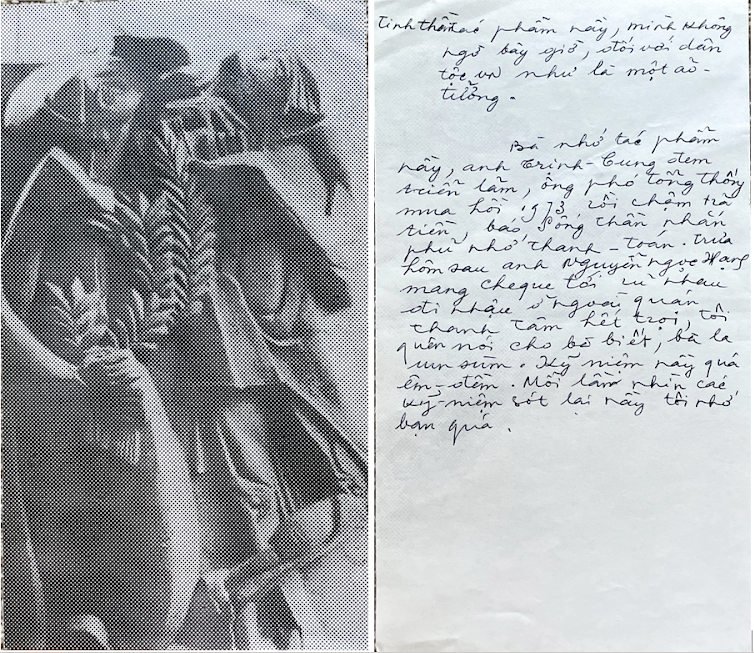 Tinh thần tác phẩm nầy, mình không
ngờ bây giờ, đối với dân
tộc và như là một ảo-
tưởng.
Bà nhớ tác phẩm
nầy, anh Trịnh-Cung đem
triễn lãm, ông phó tổng thống
mua hồi 1973 rồi chậm trả
tiền, báo Sóng thần nhắn
phủ nhớ thanh-toan. Trưa
hôm sau anh Nguyễn ngọc
mang cheque tới rủ nhau
đi nhậu ở ngoài quán
thanh tâm hết trọi, tôi
quên nói cho bà biết, bà la
um sùm. Kỹ niệm nầy quá
êm-đềm. Mỗi lần nhìn các
kỹ-niệm sót lại nầy tôi nhớ
bạn quá.